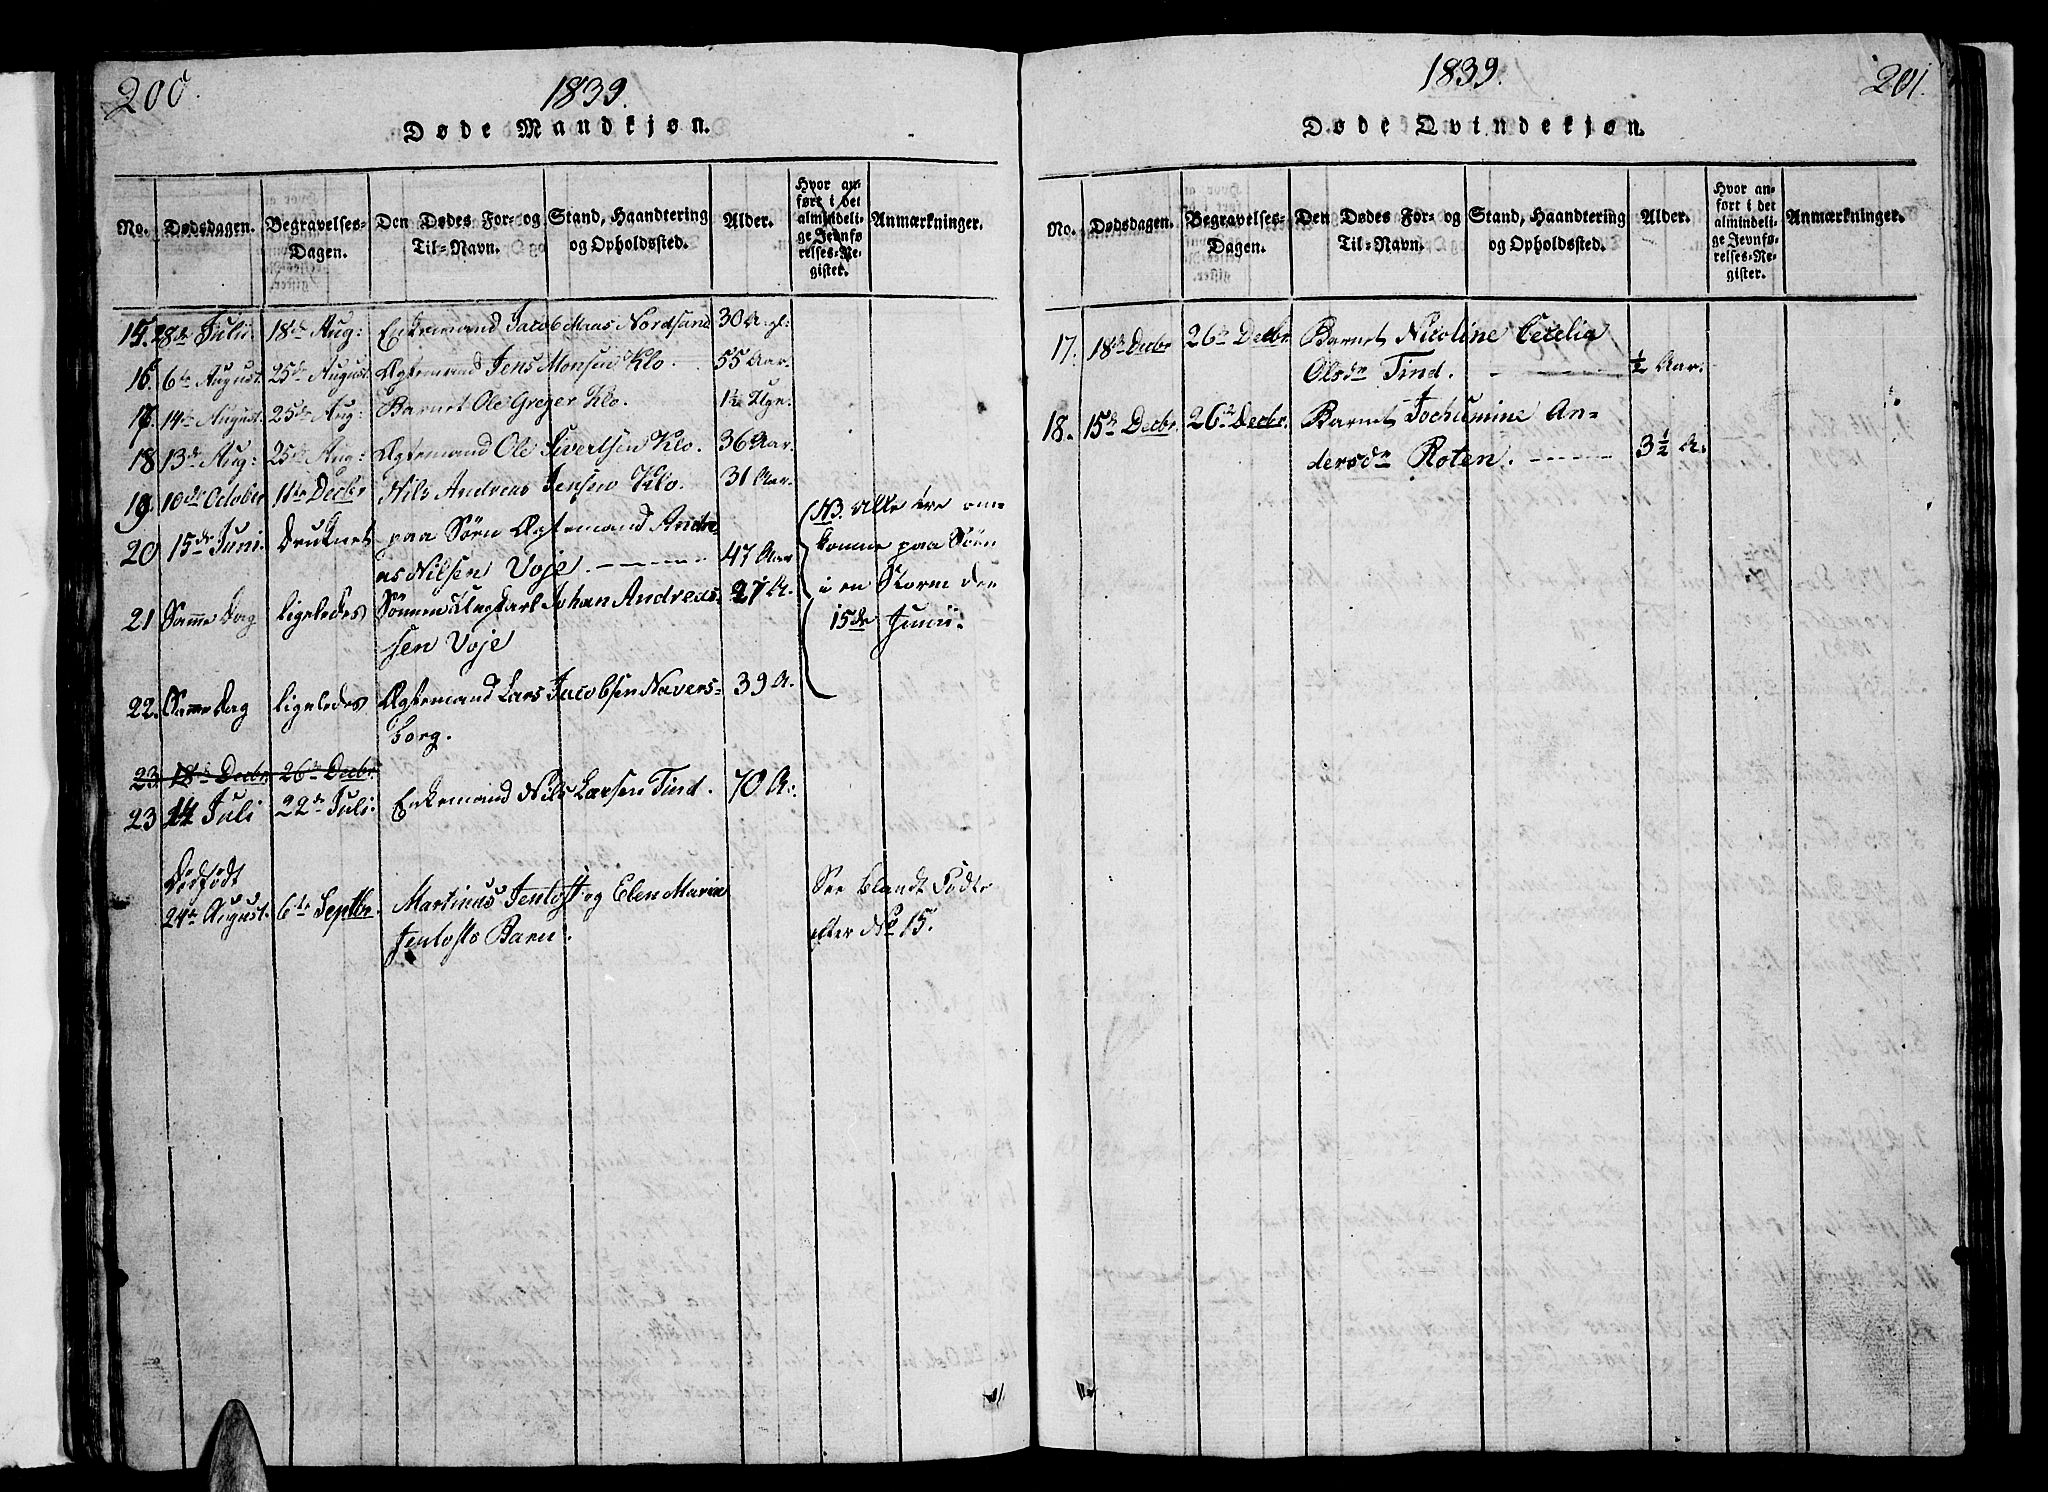 200.
1839.
Døde Mandkjøn.
No.
Dødsdagen.
Begravelses-
Dagen.
Den Dødes For- og
Til-Navn.
Stand, Haandtering
og Opholdssted.
Alder.
Hvor an-
ført i det
almindeli-
ge Jevnfø-
relses-Re-
gister.
Anmærkninger.
15. 28de Julii 18de Aug: Enkemand Jacob Maas Nordsand 30 A
16. 6te August. 25de August. Ægtemand Jens Monsen Klo. 55 Aar.
17. 14de August. 25de Aug: Barnet Ole Greger Klo.
18 13de Aug: 25de Aug: Ægtemand Ole Sivertsen Klo. 36 Aar.
19. 10de October 11te Decbr Nils Andreas Jensen Klo. 31 Aar.
20 15de Juni. Druknet paa Söen Ægtemand Andre-
as Nilsen Voje. 47 Aar
21 Samme Dag ligeledes Sönnen Ungkarl Johan Andreas- 27 A.
sen Voje
22. Samme Dag ligeledes Ægtemand Lars Jacobsen Navers- 39 A.
borg.
NB. Alle tre om-
komne paa Söen
i en Storm den
15de Junii.
23 18de Decbr 26de Decbr
23 14 Juli 22de Juli: Enkemand Nils Larsen Tind. 70 A.
Dödfödt
24de August. 6te Septbr. Martinus Jentoft og Elen Maria
Jentofts Barn.
See blandt Födte
efter No 15.
1839.
201.
Døde Qvindekjøn.
No.
Dødsdagen.
Begravelses-
Dagen.
Den Dødes For- og
Til-Navn.
Stand, Haandtering
og Opholdssted.
Alder.
Hvor an-
ført i det
almindeli-
ge Jevnfø-
relses-Re-
gister.
Anmærkninger.
17. 18de Decbr 26de Decbr Barnet Nicoline Cecelia
Olsdr Tind. ½ Aar.
18. 15de Decbr. 26de Decbr. Barnet Jochumine An-
dersdr Roten. 3½ A.